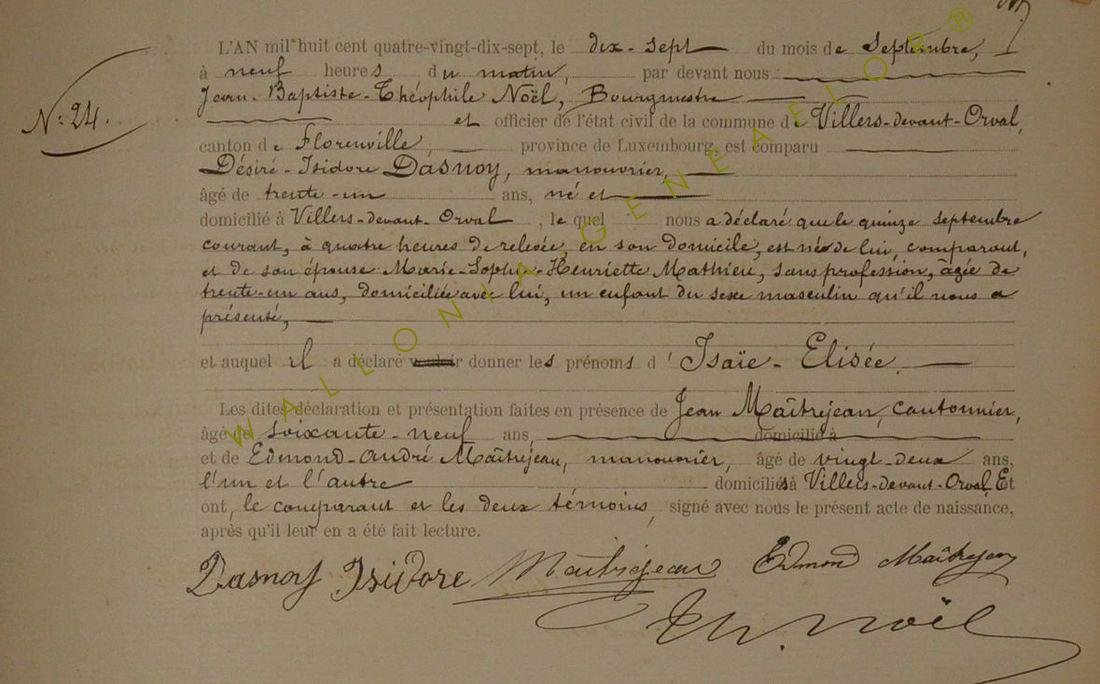 L'AN mil huit cent quatre-vingt-dix-sept, le dix-sept du mois de Septembre,
à neuf heures du matin, par devant nous :
Jean-Baptiste-Théophile Noël, Bourgmestre
N° 24.
et officier de l'état civil de la commune de Villers-devant-Orval,
canton de Florenville, province de Luxembourg, est comparu
Désiré-Isidore Dasnoy, manouvrier,
âgé de trente-un ans, né et
domicilié à Villers-devant-Orval, lequel nous a déclaré que le quinze septembre
courant, à quatre heures de relevée, en son domicile, est né de lui, comparant,
et de son épouse Marie-Sophie-Henriette Mathieu, sans profession, âgée de
trente-un ans, domiciliée avec lui, un enfant du sexe masculin qu'il nous a
présenté,
et auquel il a déclaré vouloir donner les prénoms d'Isaïe-Elisée.
Les dites déclaration et présentation faites en présence de Jean Maîtrejean, cantonnier,
âgé de soixante-neuf ans, domicilié à
et de Edmond-André Maîtrejean, manouvrier, âgé de vingt-deux ans,
l'un et l'autre domiciliés à Villers-devant-Orval, Et
ont, le comparant et les deux témoins, signé avec nous le présent acte de naissance,
après qu'il leur en a été fait lecture.
Dasnoy Isidore Maitrejean Edmond Maîtrejean
Th. Noël
WALLONIA GENEALOR®